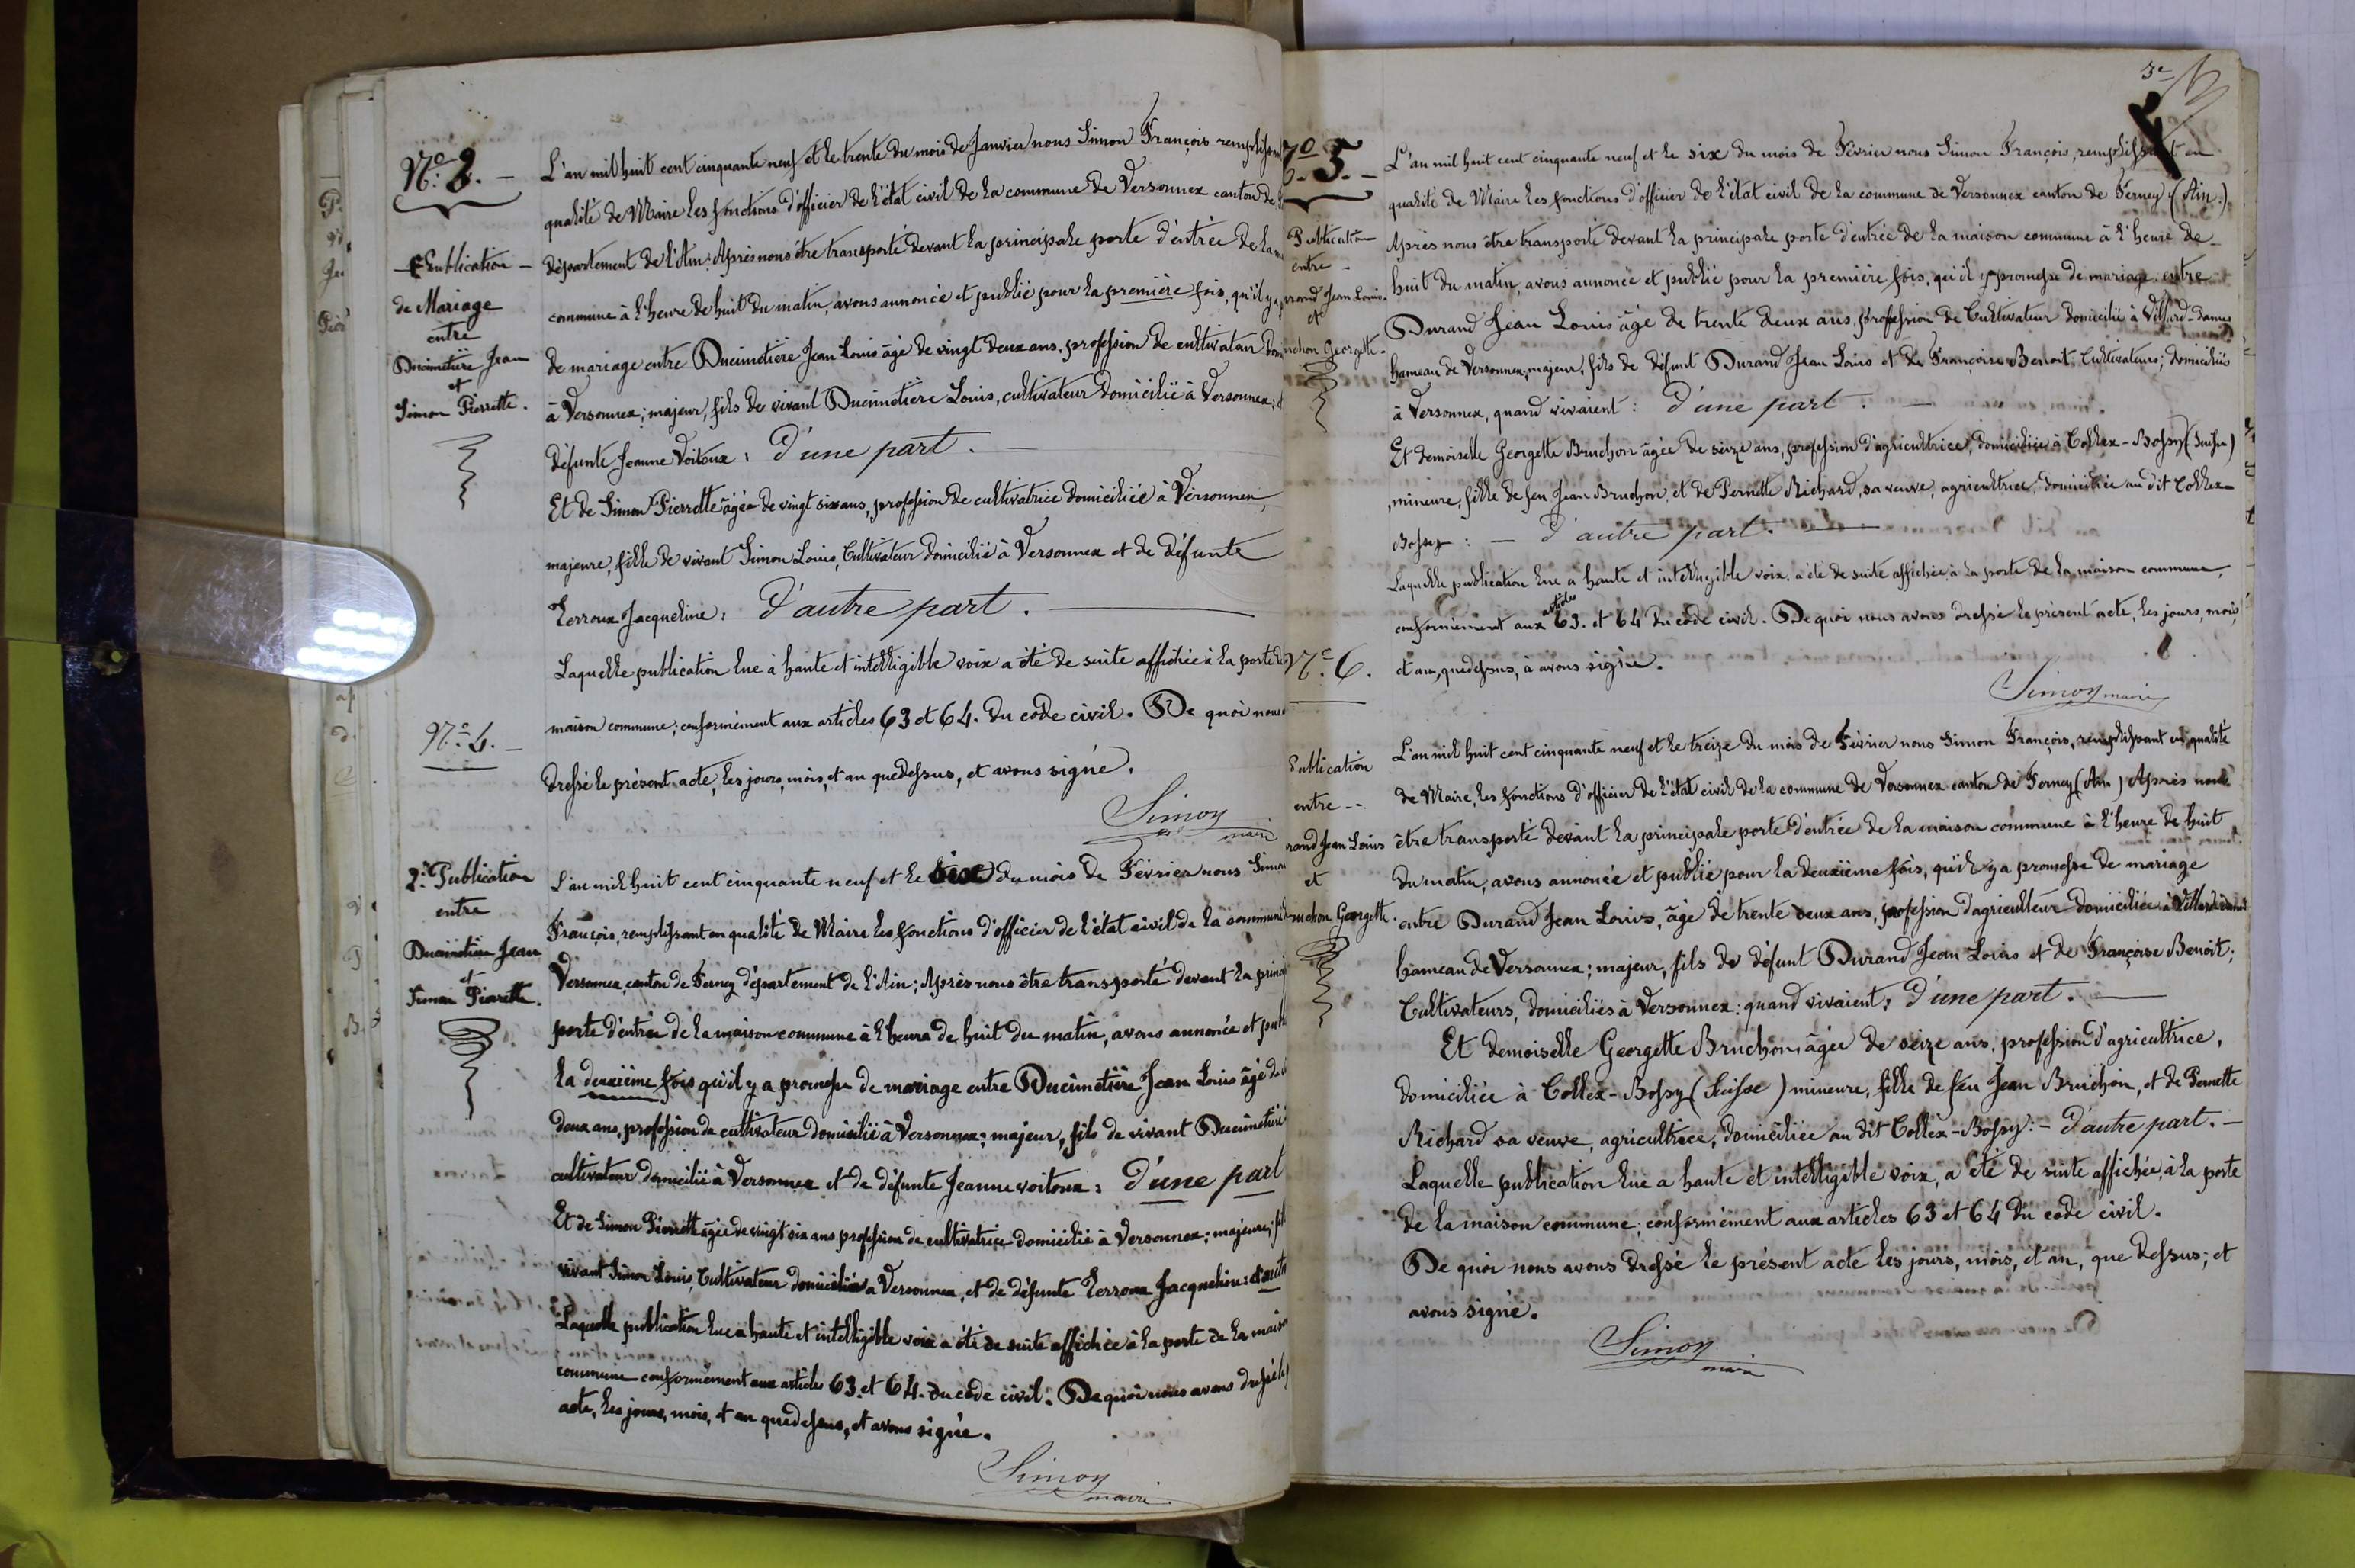 N.º 3. —
— Publication —
de Mariage
entre
Ducimetière Jean
et
Simon Pierrette.
L'an mil huit cent cinquante neuf et le trente du mois de Janvier nous Simon François remplissan
qualité de Maire les fonctions d'officier de l'état civil de la commune de Versonnex canton de
département de l'Ain: Après nous être transporté devant la principale porte d'entrée de la
commune à l'heure de huit du matin, avons annoncé et publié pour la première fois, qu'il y a
de mariage entre Ducimetière Jean Louis âgé de vingt deux ans, profession de cultivateur dom
à Versonnex; majeur, fils de vivant Ducimetière Louis, cultivateur domicilié à Versonnex; et
défunte Jeanne Voitoux: D'une part. —
Et de Simon Pierrette âgée de vingt six ans, profession de cultivatrice domiciliée à Versonnex,
majeure, fille de vivant Simon Louis, Cultivateur domicilié à Versonnex et de défunte
Terroux Jacqueline: D'autre part. —
Laquelle publication lue à haute et intelligible voix a été de suite affichée à la porte de
maison commune; conformément aux articles 63 et 64. du code civil. De quoi nous
dressé le présent acte, les jours, mois, et an que dessus, et avons signé.
Simon
maire
N.º 4. —
2.e Publication
entre
Ducimetière Jean
et
Simon Pierrette.
L'an mil huit cent cinquante neuf et le six du mois de Février nous Simon
François, remplissant en qualité de Maire les fonctions d'officier de l'état civil de la commune
Versonnex, canton de Ferney département de l'Ain; Après nous être transporté devant la princi
porte d'entrée de la maison commune à l'heure de huit du matin, avons annoncé et pub
la deuxième fois qu'il y a promesse de mariage entre Ducimetière Jean Louis âgé de
deux ans, profession de cultivateur domicilié à Versonnex; majeur, fils de vivant Ducimetière
cultivateur domicilié à Versonnex et de défunte Jeanne voitoux: D'une part
Et de Simon Pierrette âgée de vingt six ans profession de cultivatrice domicilié à Versonnex; majeure; fil
vivant Simon Louis, Cultivateur domicilié à Versonnex, et de défunte Terroux Jacqueline: d'autr
Laquelle publication lue a haute et intelligible voix a été de suite affichée à la porte de la maiso
commune conformément aux articles 63. et 64. du code civil. De quoi nous avons dressé le
acte, les jours, mois, et an que dessus, et avons signé.
Simon
maire
3e
º 5. —
Publication
entre —
rand Jean Louis.
et
uchon Georgette.
L'an mil huit cent cinquante neuf et le six du mois de Février nous Simon François, remplissant en
qualité de Maire les fonctions d'officier de l'état civil de la commune de Versonnex canton de Ferney (Ain.)
Après nous être transporté devant la principale porte d'entrée de la maison commune à l'heure de
huit du matin, avons annoncé et publié pour la première fois, qu'il y promesse de mariage: entre
Durand Jean Louis âgé de trente deux ans, profession de Cultivateur domicilié à Villard-dames
hameau de Versonnex, majeur, fils de défunt Durand Jean Louis et de Françoise Benoit, Cultivateurs; domiciliés
à Versonnex, quand vivaient: D'une part. —
Et demoiselle Georgette Bruchon âgée de seize ans, profession d'agricultrice, domiciliée à Collex-Bossy (Suisse)
mineure, fille de feu Jean Bruchon, et de Pernette Richard, sa veuve, agricultrice, domiciliée au dit Collex-
Bossy: — d'autre part. —
Laquelle publication lue a haute et intelligible voix, a été de suite affichée à la porte de la maison commune,
conformément aux articles 63. et 64 du code civil. De quoi nous avons dressé le présent acte, les jours, mois,
et an, que dessus, à avons signé.
Simon maire
N.º 6.
Publication
entre --
rand Jean Louis
et
uchon Georgette.
L'an mil huit cent cinquante neuf et le treize du mois de Février nous Simon François, remplissant en qualité
de Maire, les fonctions d'officier de l'état civil de la commune de Versonnex canton de Ferney (Ain) Après nous
être transporté devant la principale porte d'entrée de la maison commune à l'heure de huit
du matin, avons annoncé et publié pour la deuxième fois, qu'il y a promesse de mariage
entre Durand Jean Louis, âgé de trente deux ans, profession d'agriculteur domiciliée à Villard-dames
hameau de Versonnex; majeur, fils de défunt Durand Jean Louis et de Françoise Benoit;
Cultivateurs, domiciliés à Versonnex: quand vivaient, D'une part. —
Et demoiselle Georgette Bruchon, âgée de seize ans, profession d'agricultrice,
domiciliée à Collex-Bossy (Suisse) mineure, fille de feu Jean Bruchon, et de Pernette
Richard sa veuve, agricultrice, domiciliée au dit Collex-Bossy: — D'autre part. —
Laquelle publication lue a haute et intelligible voix, a été de suite affichée, à la porte
de la maison commune; conformément aux articles 63 et 64 du code civil.
De quoi nous avons dressé le présent acte les jours, mois, et an, que dessus; et
avons signé.
Simon
maire